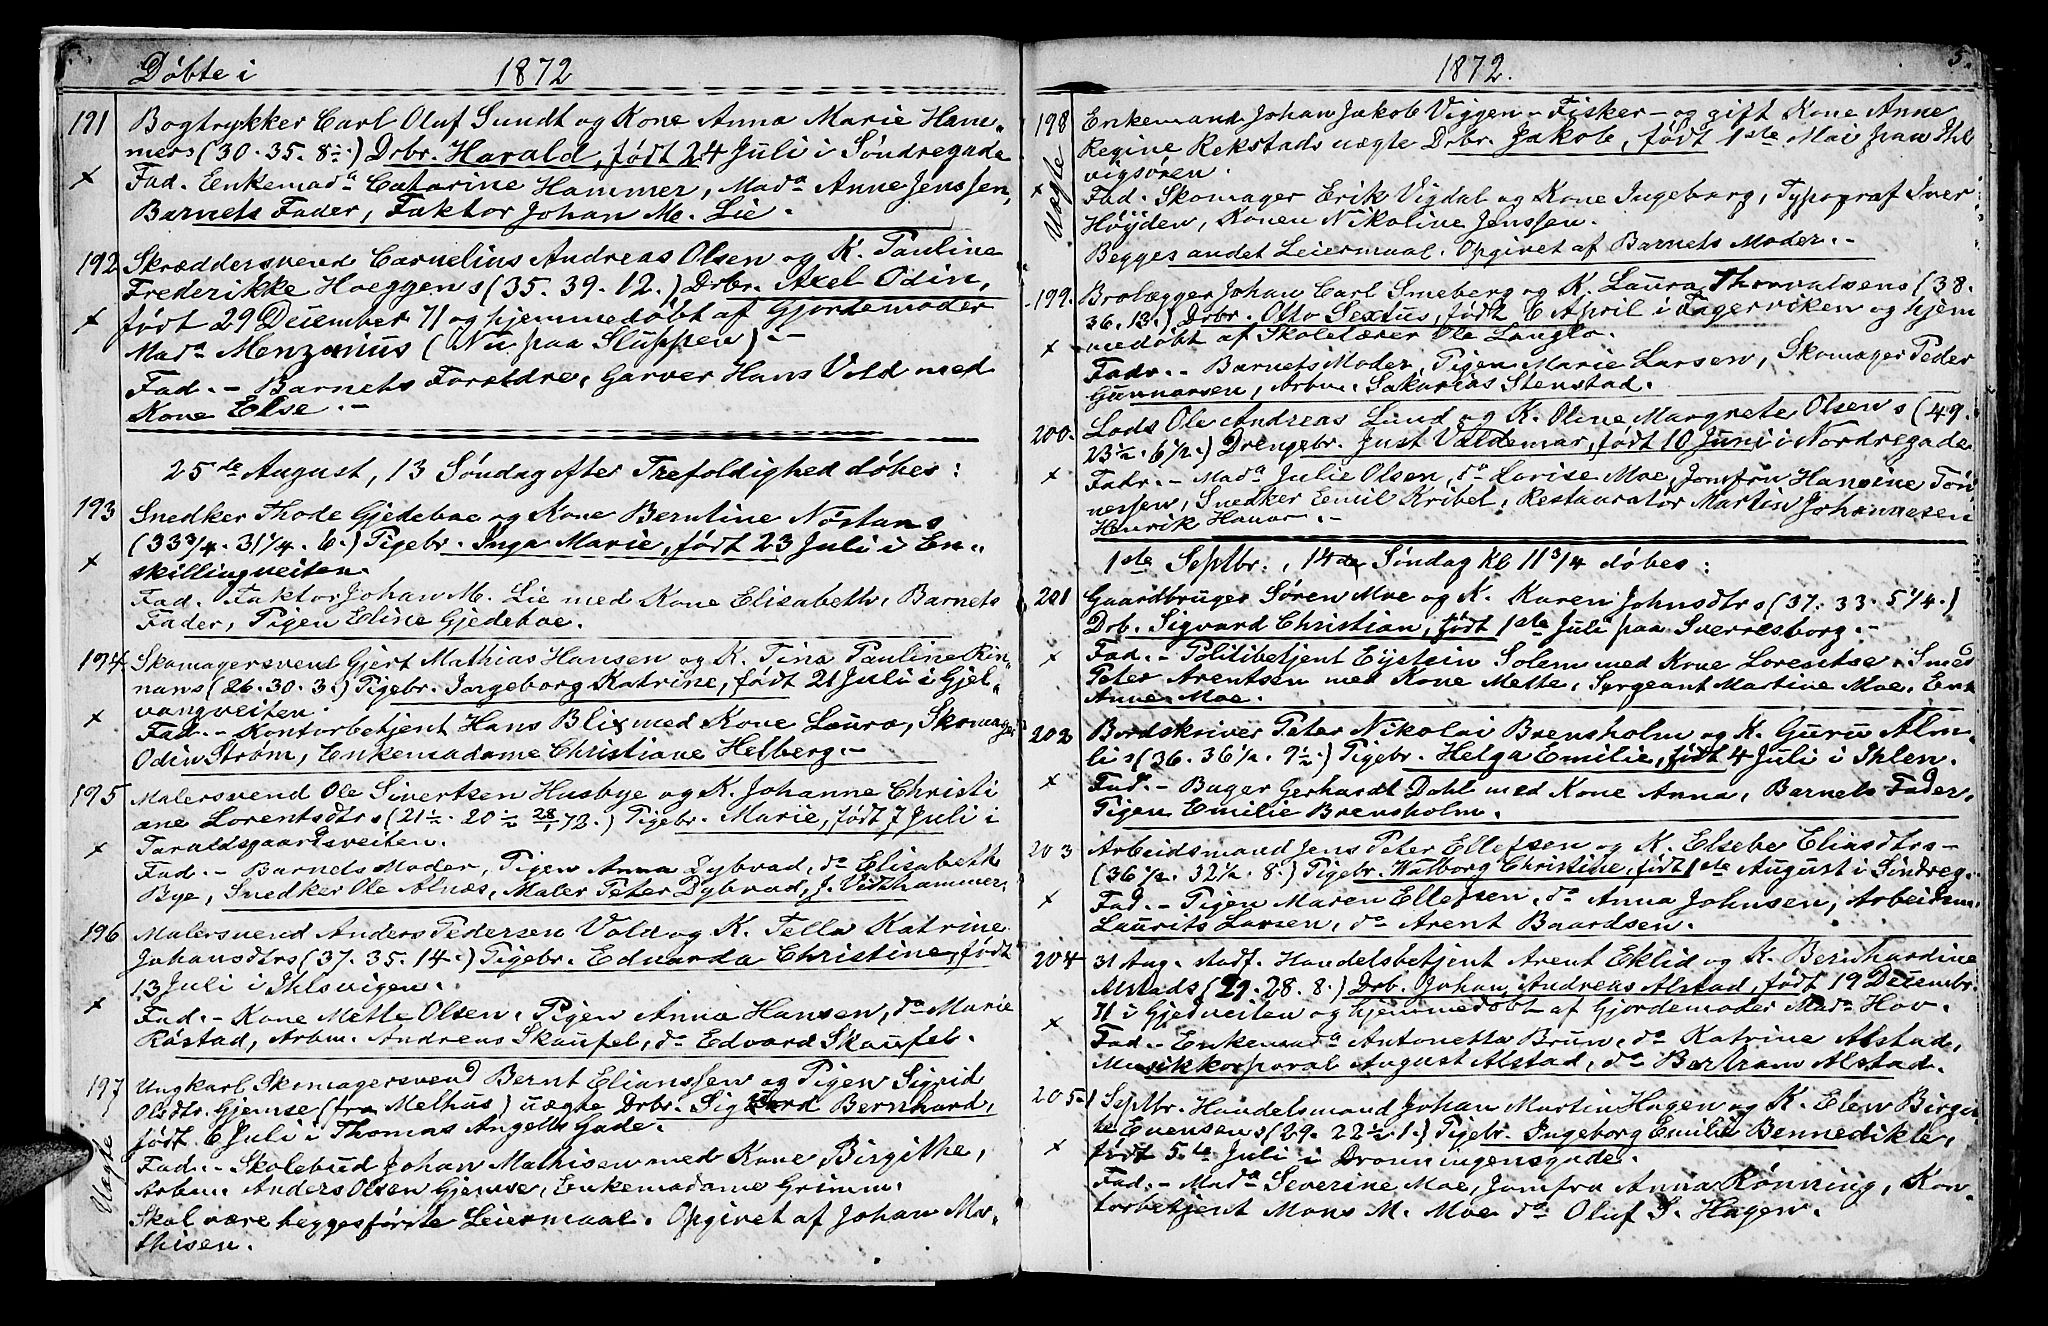 Döbte i 1872
191 Bogtrykker Carl Oluf Sundt og Kone Anna Marie Ham„
mers (30. 35. 8½.) Drbr. Harald, født 24 Juli i Søndregade
× Fad. Enkemadª Catarine Hammer, Madª Anne Jenssen,
Barnets Fader, Faktor Johan M. Lie.
192 Skræddersvend Carnelius Andreas Olsen og K. Pauline
Frederikke Hoeggens (35. 39. 12.) Drbr. Axel Odin,
× født 29 December 71 og hjemmedøbt af Gjortemoder
Madª Menzonius (Nu paa Sluppen) –
Fad. – Barnets Forældre, Garver Hans Vold med
Kone Else. –
25de August, 13 Søndag efter Trefoldighed døbes:
193 Snedker Thode Gjedeboe og Kone Berntine Nøstans
(33¾. 31¼. 6.) Pigebr. Inga Marie, født 23 Juli i En„
× skillingveiten.
Fad. Faktor Johan M. Lie med Kone Elisabeth, Barnets
Fader, Pigen Eline Gjedeboe.
194 Skomagersvend Gjert Mathias Hansen og K. Tina Pauline Rin„
nans (26. 30. 3.) Pigebr. Ingeborg Katrine, født 21 Juli i Gjel„
× vangveiten.
Fad. – Kontorbetjent Hans Blix med Kone Laura, Skomager
Odin Strøm, Enkemadame Christiane Helberg. –
195 Malersvend Ole Sivertsen Husbye og K. Johanne Christi
ane Lorentsdtrs (21½. 20½ 28/1 72.) Pigebr. Marie, født 7 Juli i
× Taraldsgaardsveiten.
Fad. – Barnets Moder, Pigen Anna Dybvad, do Elisabeth
Bye, Snedker Ole Alnæs, Maler Peter Dybvad, J. Vidthammer,
196 Malersvend Anders Pedersen Vold og K. Tella Katrine
Johansdtrs (37. 35. 14.) Pigebr. Edvarda Christine, født
13 Juli i Ihlsvigen.
× Fad. – Kone Mette Olsen, Pigen Anna Hansen, do Marie
Røstad, Arbm. Andreas Skaufel, do Edvard Skaufel.
197 Ungkarl Skomagersvend Bernt Elianssen og Pigen Sigrid
Olsdtr. Gjemse (fra Melhus) uægte Drbr. Sigvard Bernhard,
født 6 Juli i Thomas Angells Gade.
Uægte Fad. – Skolebud Johan Mathisen med Kone Birgithe,
Arbm. Anders Olsen Gjemse, Enkemadame Grimm.
Skal være begges første Leiermaal. Opgivet af Johan Ma„
thisen.
1872. 5.
198 Enkemand Johan Jakob Viggen – Fisker – og gift Kone Anne
Regine Rekstads uægte Drbr. Jakob, født 1ste Mai paa Ihl
vigsøren.
× Uægte Fad. Skomager Erik Vigdal og Kone Ingeborg, Typograf Iver
Høyden, Konen Nikoline Jenssen.
Begges andet Leiermaal. Opgivet af Barnets Moder. –
199. Brolægger Johan Carl Smeberg og K. Laura Thorvalsens (38.
36. 13.) Drbr. Otto Sextus, født 6 April i Fagerviken og hjem
× medøbt af Skolelærer Ole Langlo.
Fadr. – Barnets Moder, Pigen Marie Larsen, Skomager Peder
Gunnarsen, Arbm. Sakarias Stenstad.
200. Lods Ole Andreas Lund og K. Oline Margrete Olsens (49.
23½. 6½.) Drengebr. Just Valdemar, født 10 Juni i Nordregade
× Fadr. – Madª Julie Olsen, do Lovise Moe, Jomfru Hansine Tön
nessen, Snedker Emil Kribel, Restauratör Martin Johannesen
Henrik Hanor. –
1ste Septbr., 14de Søndag kl 11¾ døbes:
201 Gaardbruger Søren Moe og K. Karen Johnsdtrs (37. 33. 5¼.)
Drb. Sigvard Christian, født 1ste Juli paa Sverresborg. –
× Fad. – Politibetjent Eystein Solem med Kone Lorentse. Smed
Peter Arentsen med Kone Mette, Syrgeant Martine Moe, Enk
Anne Moe.
202 Bordskriver Peter Nikolai Brensholm og K. Guru Alm„
lis (36. 36½. 9½.) Pigebr. Helga Emilie, født 4 Juli i Ihlen.
× Fad. – Bager Gerhardt Dahl med Kone Anna, Barnets Fader,
Pigen Emilie Brensholm.
203 Arbeidsmand Jens Peter Ellefsen og K. Elsebe Eliasdtrs –
(36½. 32½. 8.) Pigebr. Walborg Christine, født 1ste August i Søndreg.
× Fad. – Pigen Maren Ellefsen, do Anna Johnsen, Arbeidsm.
Laurits Larsen, do Arent Baardsen.
204 31 Aug. stadf. Handelsbetjent Arent Eklid og K. Bernhardine
Alstads (29. 28. 8.) Drb. Johan Andreas Alstad, født 19 Decembr.
71 i Gjedveiten og hjemmedøbt af Gjordemoder Madª Hov.
× Fad. – Enkemadª Antonetta Brun, do Katrine Alstad,
Musikkorporal August Alstad, do Bertram Alstad.
205. 1 Septbr. Handelsmand Johan Martin Hagen og K. Elen Birgit
te Evensens (29. 22½. 1.) Pigebr. Ingeborg Emilie Bennedikte,
× født 5te Juli i Dronningensgade.
Fad. – Madª Severine Moe, Jomfru Anna Rønning, Kon„
torbetjent Mons M. Moe do Oluf S. Hagen.